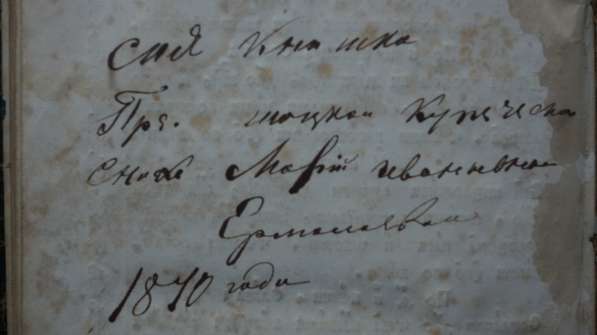 сия Книшка
Пре. шоцкой Купеческой
снохе Марiи ивановной
Ермолаевой
1870 года